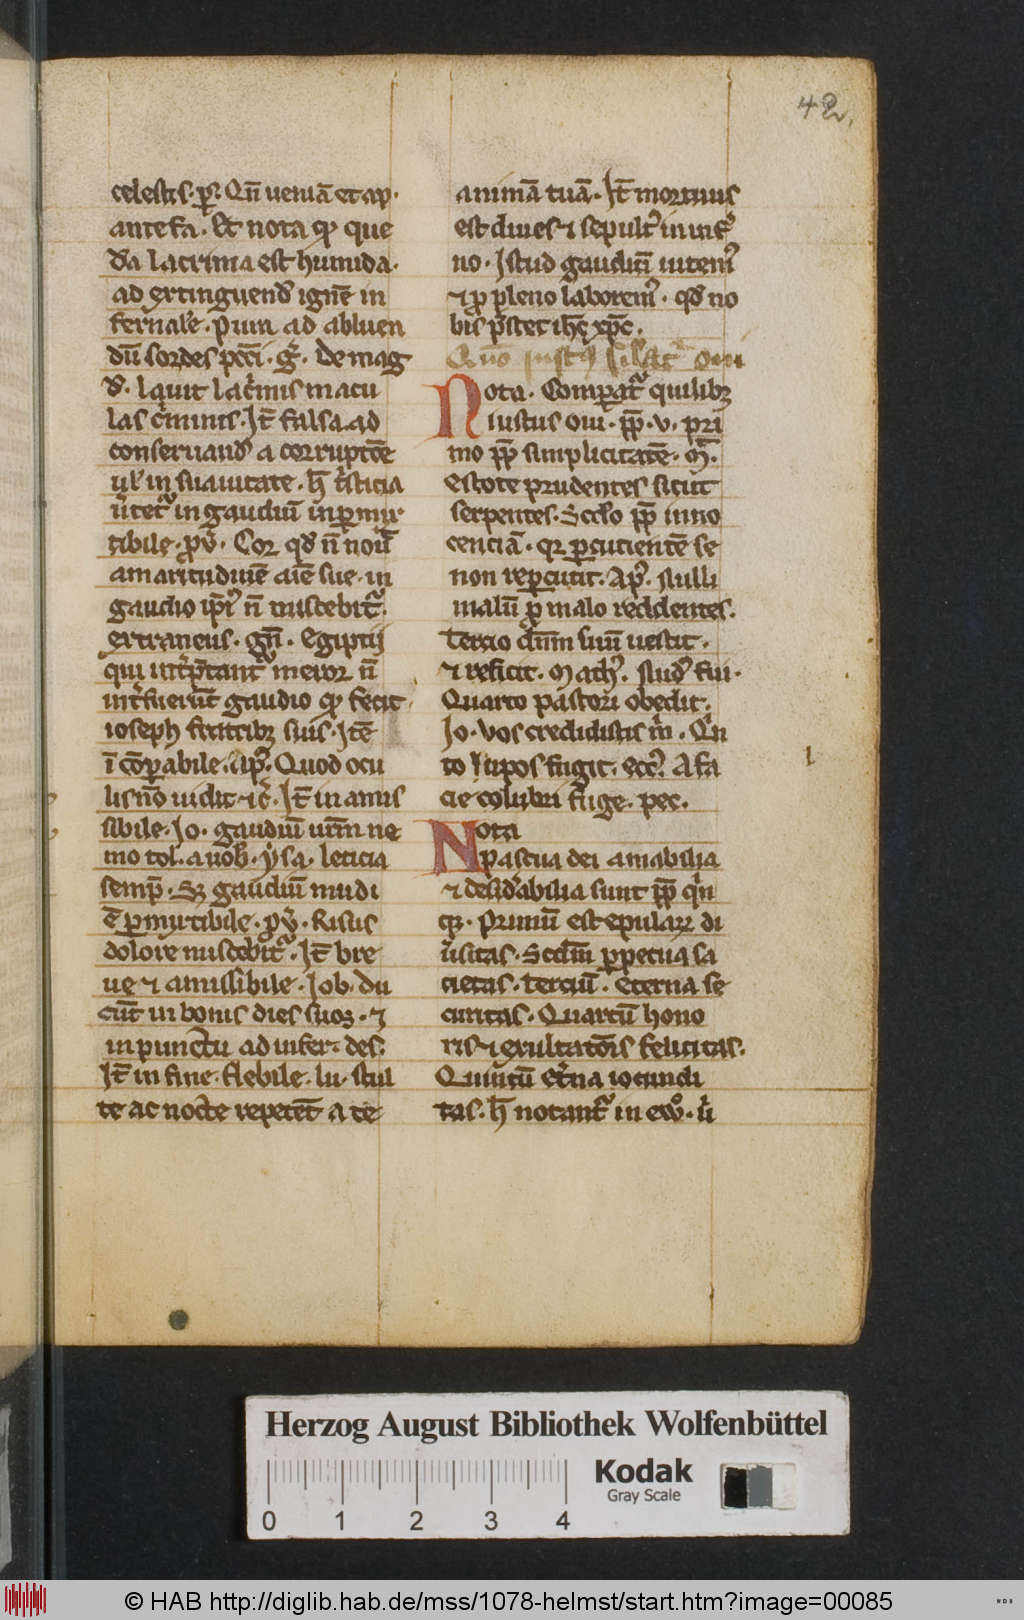 42
celestis. ps. Qn̄ ueniā et ap
ante fa. Et nota ꝙ que
dā lacrima est humida.
ad extinguend̛ ignē in
fernalē. Pura ad abluen
dū sordes pcci. gͥ. De mag
d̛. lauit lac̛mis macu
las c̛minis. It̄ falsa ad
conseruand̛ a corruptōe
ul̛ in suauitate. h̄ t̛sticia
ưtet᷑ in gaudiū inpermix
tibile. pͮ. Cor qd̛ n̄ noư
amaritudinē aīe sue. in
gaudio ipͥ n̄ miscebit᷑
extraneus. gn̄. Egiptij
qui int̛p̄tant᷑ meror n̄
int̛fuerūt gaudio ꝙ fecit
ioseph fratribꝫ suis. Itē
ī cōꝑabile. Ap̛. Quod ocu
lis nō uidit ⁊c̛. It̄ in amis
sibile. Jo. gaudiū ur̄m ne
mo tol. a uob̛. ysa. leticia
semp̄. Sꝫ gaudiū mūdi
ē ꝑmixtibile. pͮ. Risus
dolore miscebit᷑. It̄ bre
ue ⁊ amissibile. Job. du
cūt in bonis dies suos. ⁊
in punctu ad infer. des.
It̄ in fine flebile. lu. stul
te ac nocte repetēt a te
animā tuā. It̄ mortuus
est diues ⁊ sepult᷒ in inf̛
no. Istud gaudiū uitem᷒
⁊ ꝓ pleno laborem᷒. qd̛ no
bis p̄stet ihc̄ xpc̄.
Quō iust᷒ sil̛at᷑ oui
Nota. Comparat᷑ quilibꝫ
iustus oui. ꝓp̄. v. pri
mo ꝓp̄ simplicitatē. M̄.
Estote prudentes sicut
serpentes. Scd̛o ꝓp̄ inno
cenciā. qꝛ ꝑcutientē se
non reꝑcutit. Ap̛. Nulli
malū ꝓ malo reddentes.
Tercio dn̄m suū uestit.
⁊ reficit. Math̛. Nud᷒ fui.
Quarto pastori obedit.
Jo. Vos credidistis m̄. Qͥn
to lupos fugit. ecc̛. A fa
cie colubri fuge. pec.
Nota
pascua dei amabilia
⁊ desid̛abilia sunt ꝓp̄ qͥn
qꝫ. Primū est epulaꝝ di
ưsitas. Scd̄m ꝑpetua sa
cietas. Terciū. Eterna se
curitas. Quartū hono
ris ⁊ exultatōis felicitas.
Quintū et̛na iocundi
tas. h̄ notant᷑ in ew̛o. ư
Herzog August Bibliothek Wolfenbüttel
Kodak
Gray Scale
0 1 2 3 4
© HAB http://diglib.hab.de/mss/1078-helmst/start.htm?image=00085